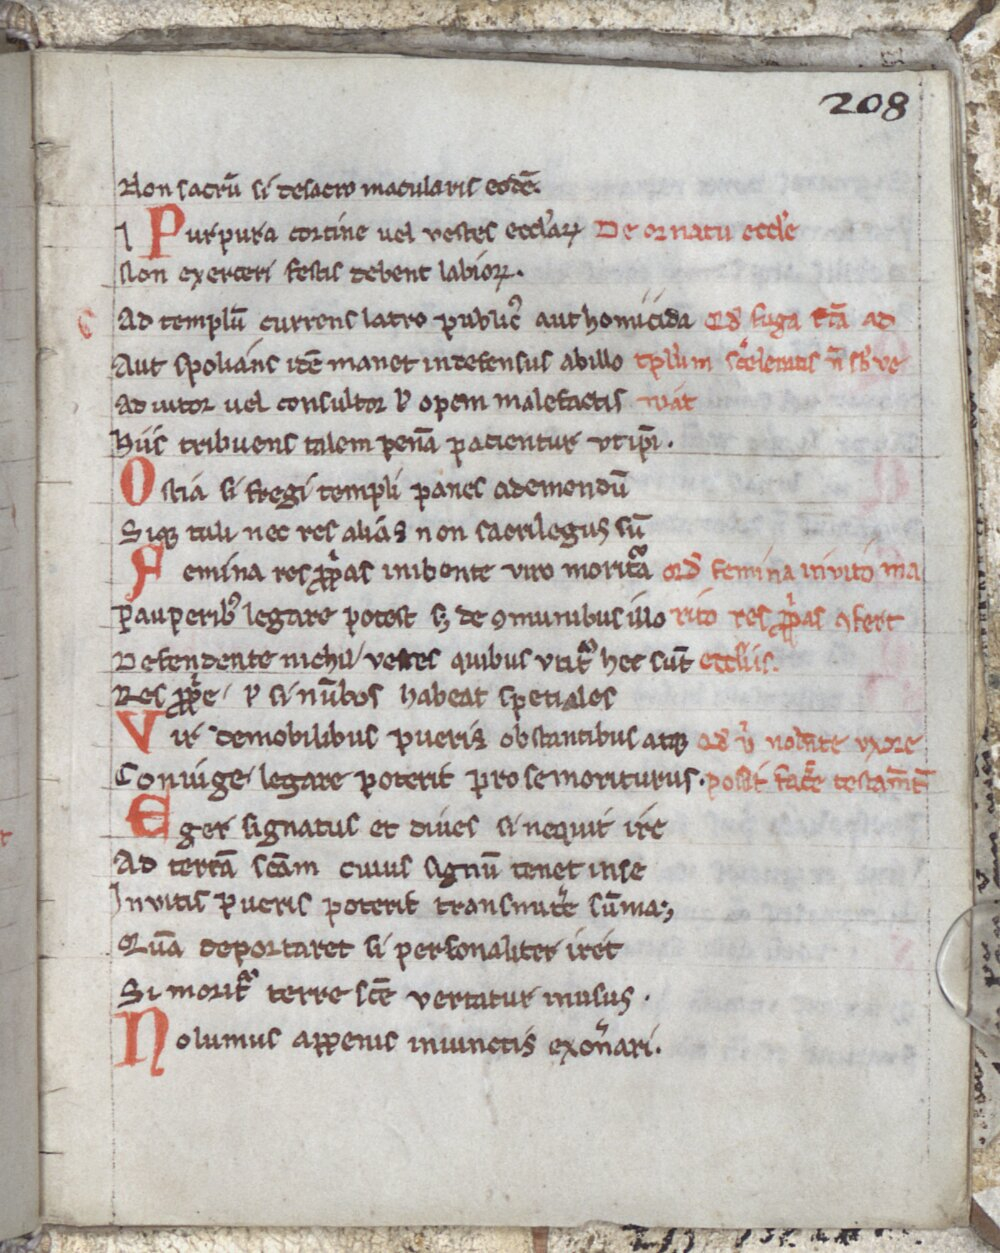 208
Non sacrũ si de sacro macularis eodẽ.
Purpura cortine uel vestes eccl'aꝝ De ornatu eccl'e
Non exerceri festis debent labioꝝ.
Ad templũ currens latro public᷒ aut homicida Qđ fuga fc̃a ad
Aut spolians idẽ manet indefensus ab illo tp̃lum sceleratis nõ
Adiutor uel consultor ł opem malefactis
Hiis tribuens talem penã pacientur vt ip̃i.
Ostia si fregi templi panes ad emendũ
Siqꝫ tuli nec res alias non sacrilegus sũ
Femina res ꝓp̃as inibente viro moritᷓa Qđ femina inuito ma
Pauperibꝰ legare potest sꝫ de ꝯmunibus illo rito res ꝓp̃as ꝯfert
Defendente nichil vestes quibus vtitᷣ hec sũt eccl'iis.
Res ꝓp̃e ł si nũmos habeat speciales
Vir de mobilibus pueris obstantibus atqꝫ Qđ uir nolente vxore
Coniuge legare poterit pro se moriturus. possit facẽ testam̃t
Eger signatus et diues si nequit ire
Ad terrã scãm cuius signũ tenet in se
Inuitis pueris poterit transmittẽ sũmã;
Quã deportaret si personaliter iret
Si moritᷣ terre scẽ vertatur in usus.
Nolumus a penis iniunctis exonãri.